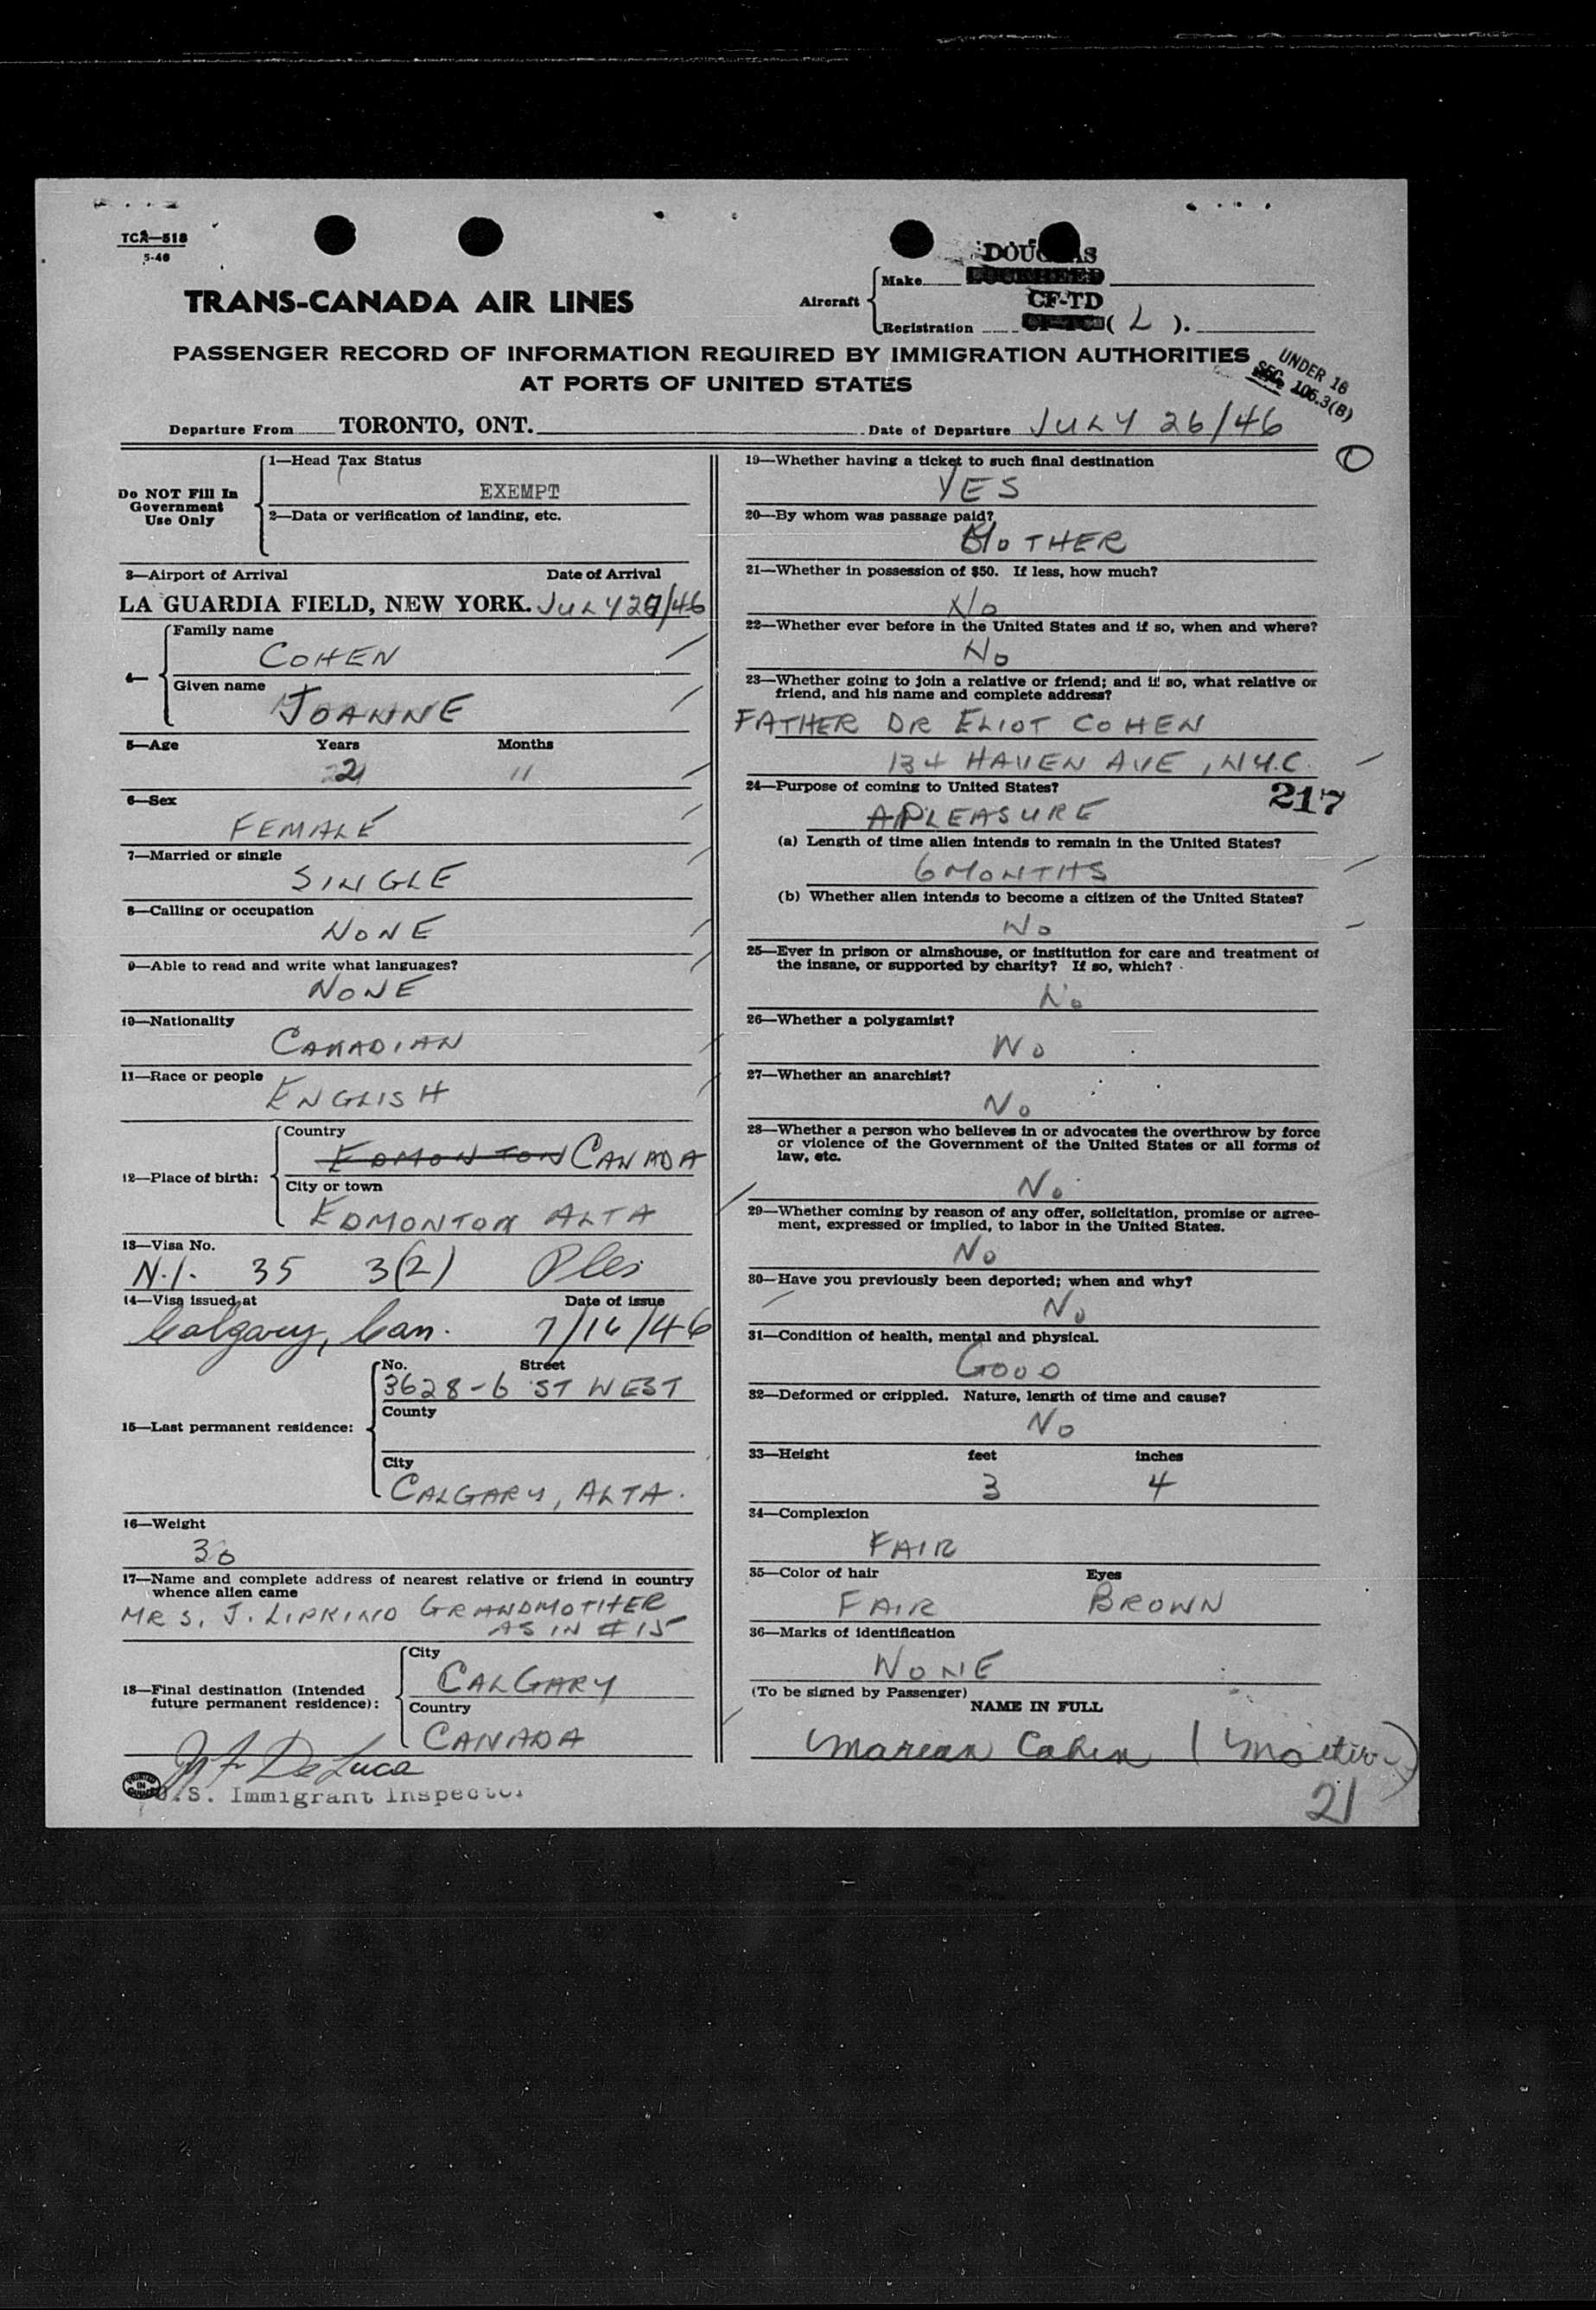 TCA—518
5-46
TRANS-CANADA AIR LINES
Aircraft
Make DOUGLAS
CF-TD
Registration ( L ).
PASSENGER RECORD OF INFORMATION REQUIRED BY IMMIGRATION AUTHORITIES
AT PORTS OF UNITED STATES
UNDER 16
SEC. 105.3(B)
Departure From TORONTO, ONT. Date of Departure JULY 26/46
Do NOT Fill In
Government
Use Only
1—Head Tax Status
EXEMPT
2—Data or verification of landing, etc.
3—Airport of Arrival Date of Arrival
LA GUARDIA FIELD, NEW YORK. JULY 26/46
4—
Family name
COHEN
Given name
JOANNE
5—Age Years Months
2 11
6—Sex
FEMALE
7—Married or single
SINGLE
8—Calling or occupation
NONE
9—Able to read and write what languages?
NONE
10—Nationality
CANADIAN
11—Race or people
ENGLISH
12—Place of birth:
Country
EDMONTON CANADA
City or town
EDMONTON ALTA
13—Visa No.
N.I. 35 3(2) Ples
14—Visa issued at Date of issue
Calgary, Can. 7/16/46
15—Last permanent residence:
No. Street
3628-6 ST WEST
County
City
CALGARY, ALTA.
16—Weight
30
17—Name and complete address of nearest relative or friend in country
whence alien came
MRS. J. LIPKIND GRANDMOTHER
AS IN # 15
18—Final destination (Intended
future permanent residence):
City
CALGARY
Country
CANADA
De Luca
PRINTED IN CANADA
U.S. Immigrant Inspector
19—Whether having a ticket to such final destination
YES
20—By whom was passage paid?
MOTHER
21—Whether in possession of $50. If less, how much?
No
22—Whether ever before in the United States and if so, when and where?
No
23—Whether going to join a relative or friend; and if so, what relative or
friend, and his name and complete address?
FATHER DR ELIOT COHEN
134 HAVEN AVE, N.Y.C.
24—Purpose of coming to United States?
217
PLEASURE
(a) Length of time alien intends to remain in the United States?
6 MONTHS
(b) Whether alien intends to become a citizen of the United States?
No
25—Ever in prison or almshouse, or institution for care and treatment of
the insane, or supported by charity? If so, which?
No
26—Whether a polygamist?
No
27—Whether an anarchist?
No
28—Whether a person who believes in or advocates the overthrow by force
or violence of the Government of the United States or all forms of
law, etc.
No
29—Whether coming by reason of any offer, solicitation, promise or agree-
ment, expressed or implied, to labor in the United States.
No
30—Have you previously been deported; when and why?
No
31—Condition of health, mental and physical.
GOOD
32—Deformed or crippled. Nature, length of time and cause?
No
33—Height feet inches
3 4
34—Complexion
FAIR
35—Color of hair Eyes
FAIR BROWN
36—Marks of identification
NONE
(To be signed by Passenger)
NAME IN FULL
Marian Cohen (Mother)
21